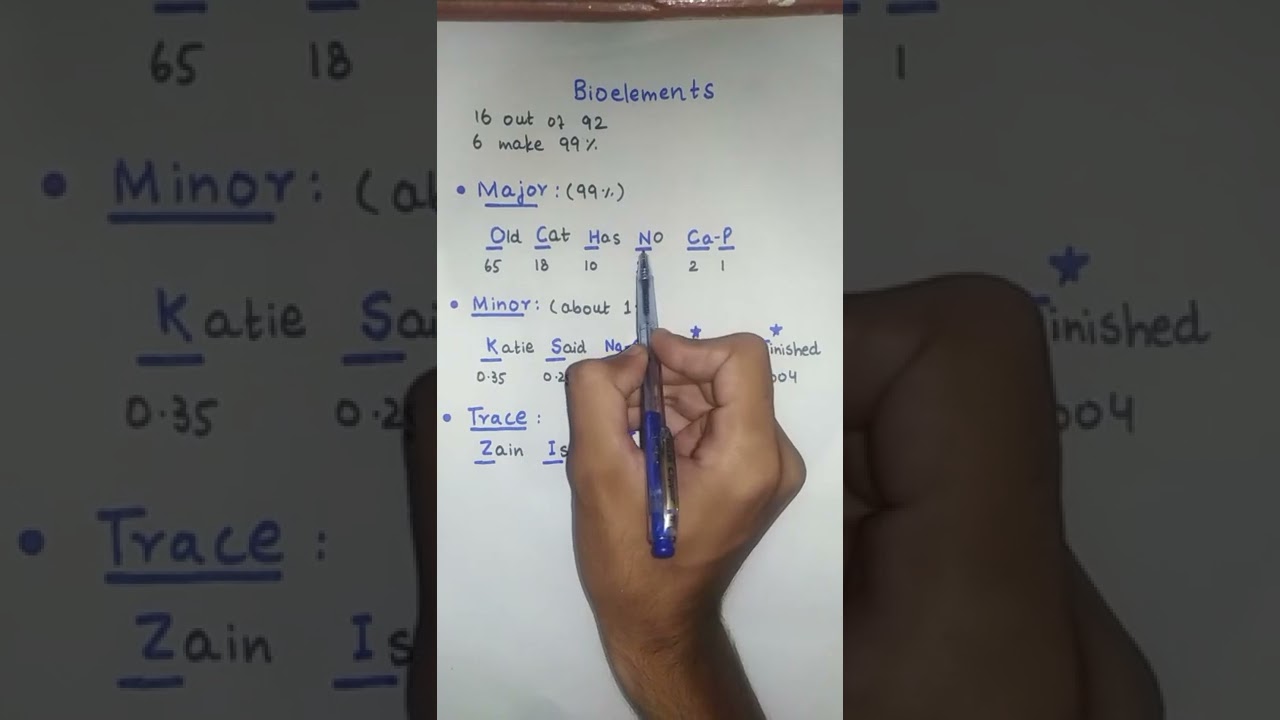 Bioelements
16 out of 92
6 make 99%
• Major: (99%)
Old Cat Has No Ca-P
65 18 10 2 1
• Minor: (about 1
Katie Said Na- finished
0.35
• Trace:
Zain